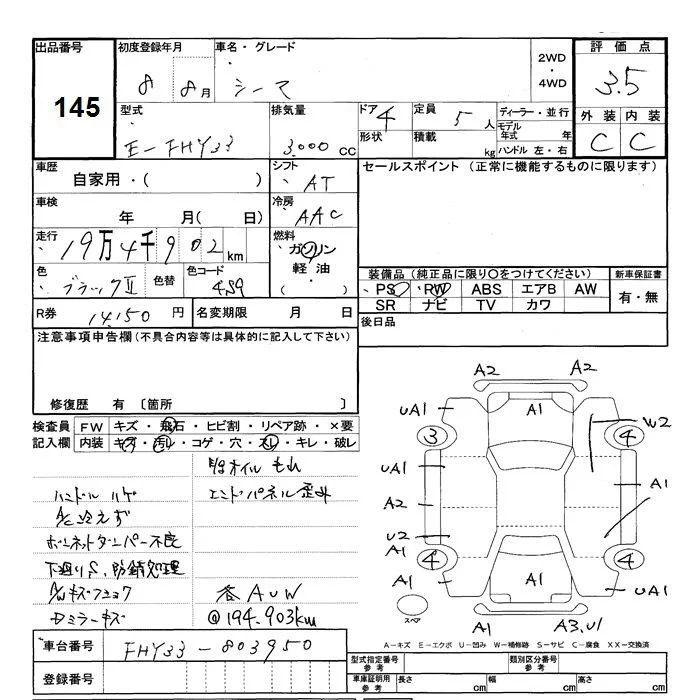 出品番号 初度登録年月 車名・グレード 評価点
145
8 8月 シーマ 2WD 4WD 3.5
型式 排気量 ドア 4 定員 5人 ディーラー・並行 外装 内装
E-FHY33 3,000 CC 形状 積載 kg モデル年式 年 C C
ハンドル 左・右
車歴 シフト セールスポイント (正常に機能するものに限ります)
自家用・( ) AT
車検 冷房
年 月( 日) AAC
走行 燃料
19万4千902km ガソリン
軽油・( )
色 色替 色コード 装備品(純正品に限り○をつけてください) 新車保証書
ブラックⅡ PS PW ABS エアB AW 有・無
SR ナビ TV カワ
R券 14,150円 名変期限 月 日 後日品
注意事項申告欄(不具合内容等は具体的に記入して下さい)
修復歴 有 〔箇所 〕
検査員 FW キズ・飛石・ヒビ割・リペア跡・×要
記入欄 内装 キズ・汚れ・コゲ・穴・スレ・キレ・破レ
オイルもれ
ハンドルハゲ エンドパネル歪み
A/C冷えず
ボーンネットダンパー不良
下廻りS、防錆処理
A/Wキズ
Dミラーキズ @194,903km
A2 A2
UA1 A1 W2
3 4
UA1 A1
A2
U2
A1
4 4
A1 A1 UA1
スペア
A1 A3,U1
A-キズ E-エクボ U-凹み W-補修跡 S-サビ C-腐食 XX-交換済
車台番号 FHY33-803950
登録番号
型式指定番号 参考 類別区分番号 参考
車庫証明用 参考 長さ cm 幅 cm 高さ cm